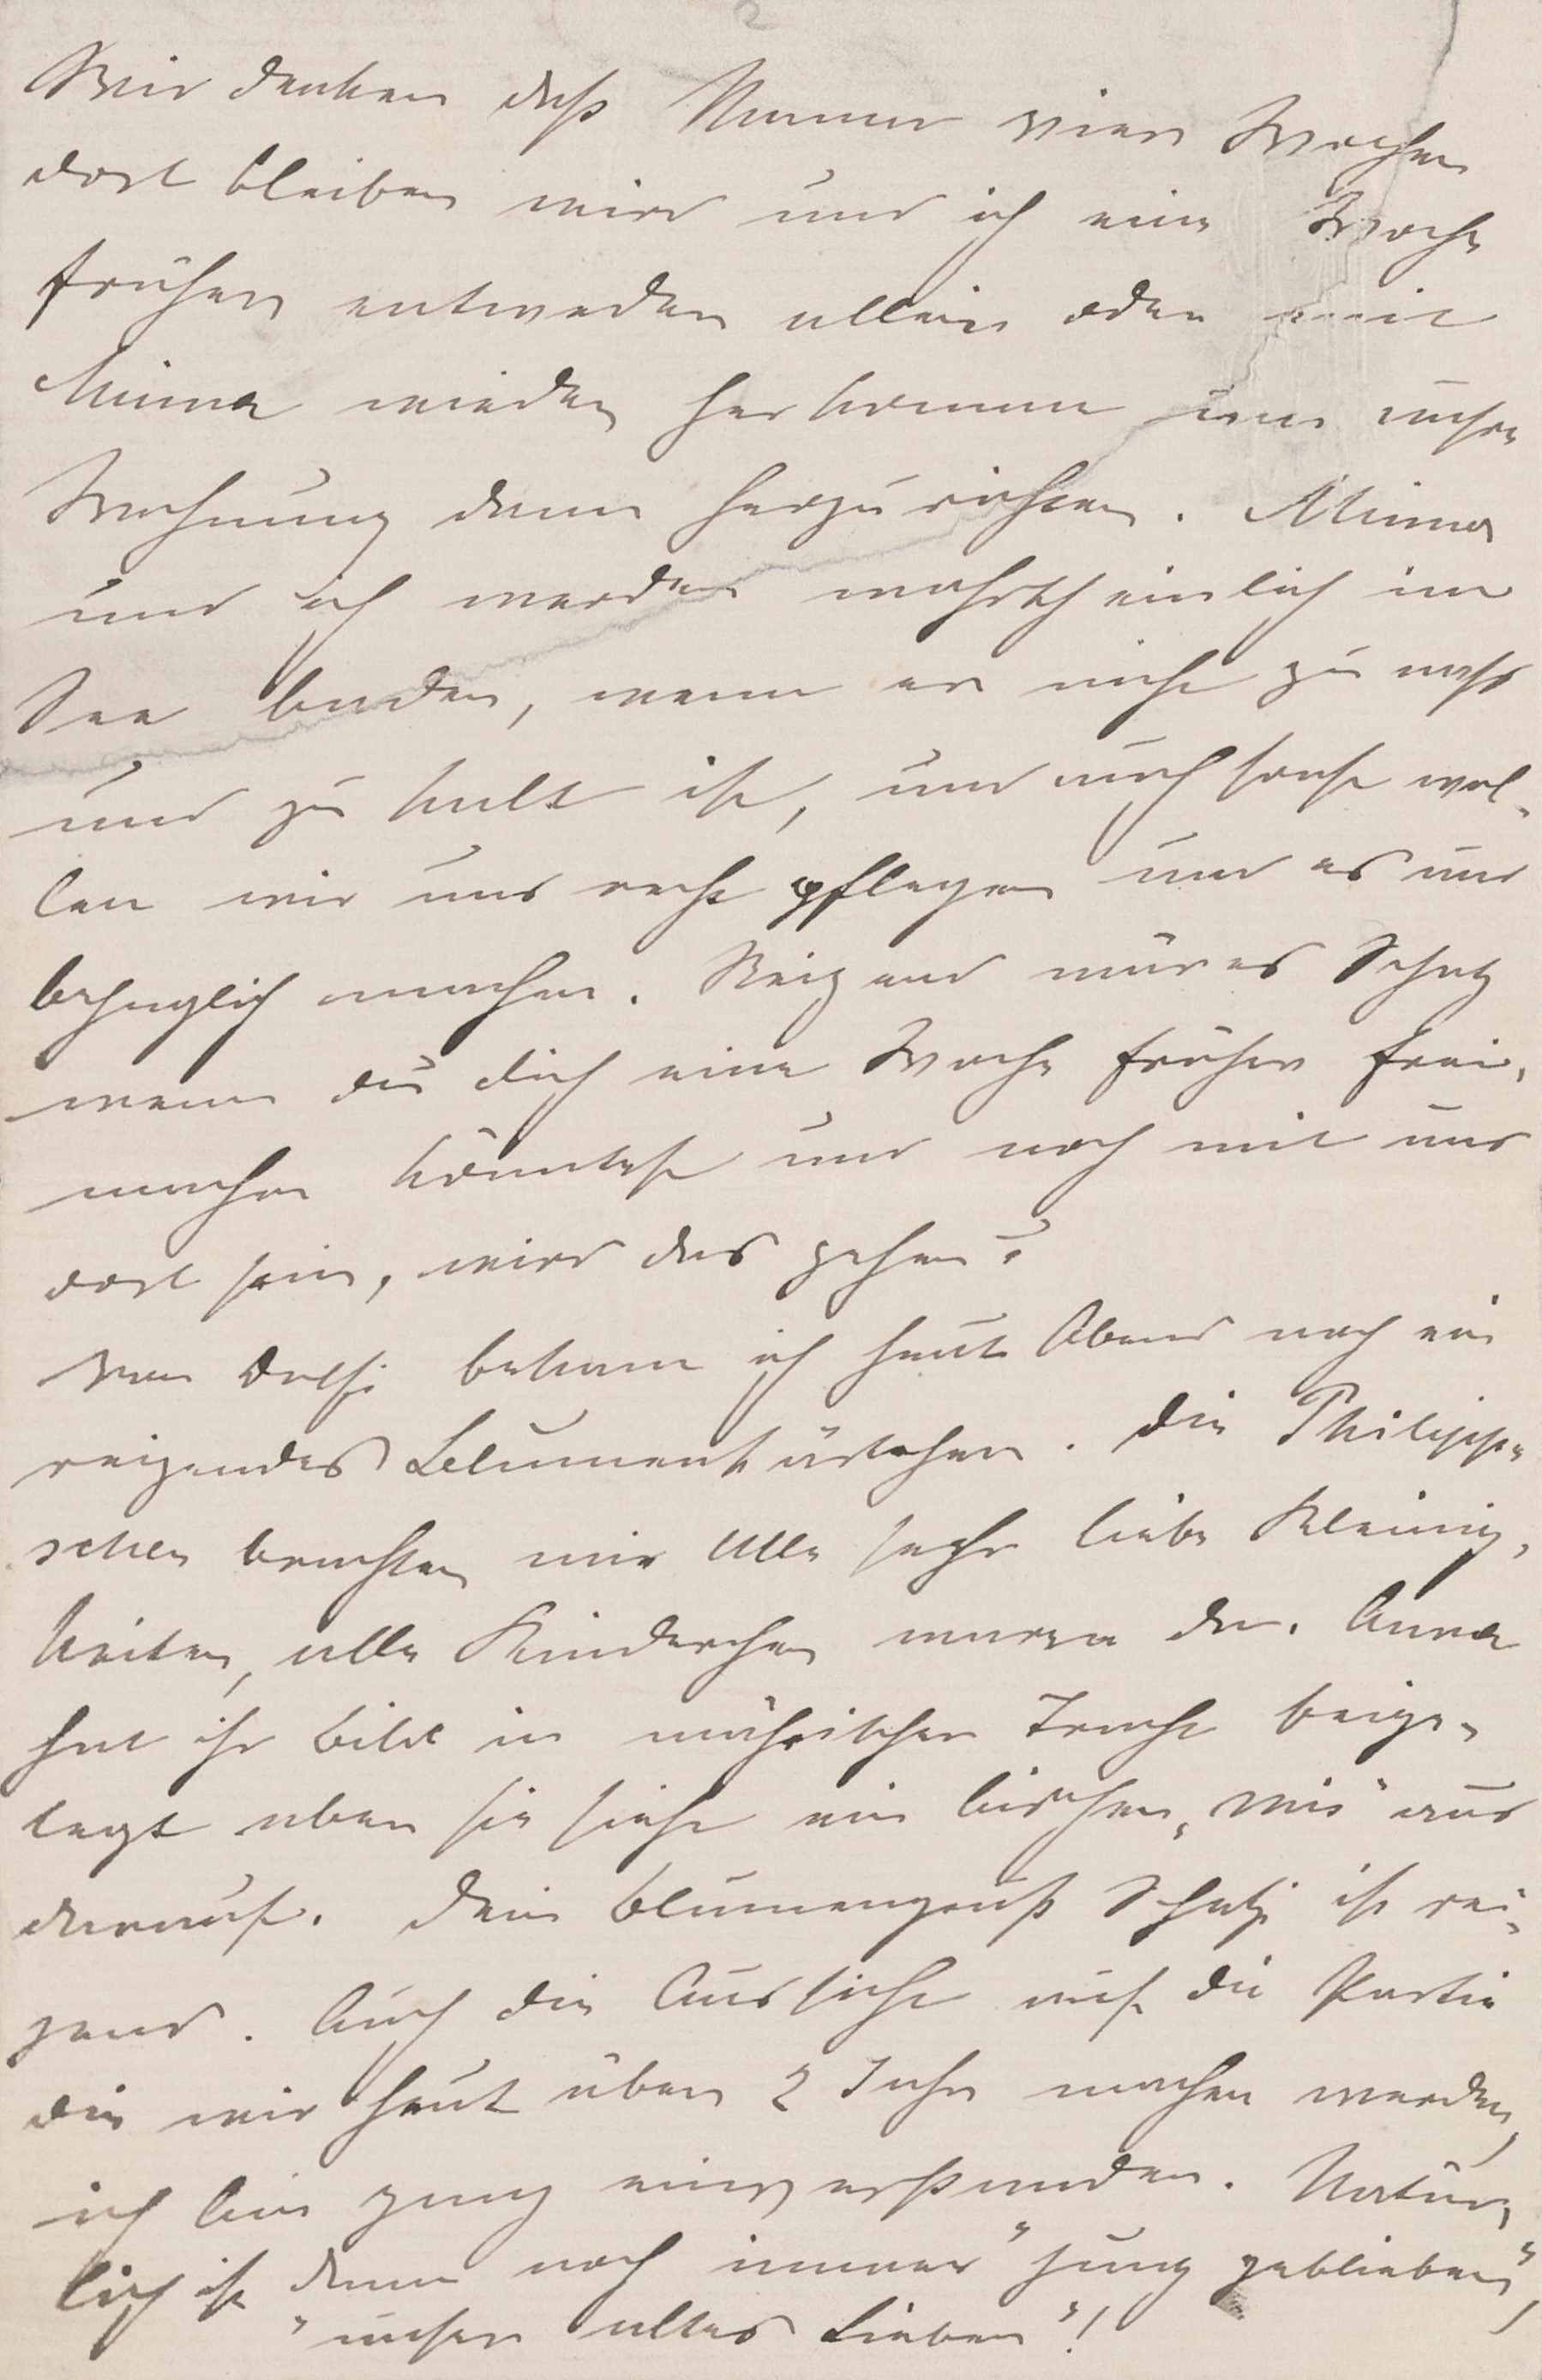 2
Wir denken daß Mama vier Wochen
dort bleiben wird und ich eine Woche
früher entweder allein oder mit
Minna wieder herkomme um unsre
Wohnung dann herzurichten. Minna
und ich werden wahrscheinlich im
See baden, wenn er nicht zu naß
und zu kalt ist, und auch sonst wol-
len wir uns recht pflegen und es uns
behaglich machen. Reizend wär es Schatz
wenn du dich eine Woche früher frei-
machen könntest und noch mit uns
dort sein, wird das gehen?
Von Dolfi bekam ich heut Abend noch ein
reizendes Blumenkörbchen. Die Philipp-
schen brachten mir Alle sehr liebe Kleinig-
keiten, alle Kinderchen waren da. Anna
hat ihr Bild in mährischer Tracht beige-
legt aber sie sieht ein bischen "mis" aus
darauf. Dein Blumengruß Schatzi ist rei-
zend. Auch die Aussicht auf die Partie
die wir heut über 2 Jahr machen werden,
ich bin ganz einverstanden. Natür-
lich ist dann noch immer "jung geblieben",
"unser altes Lieben"!